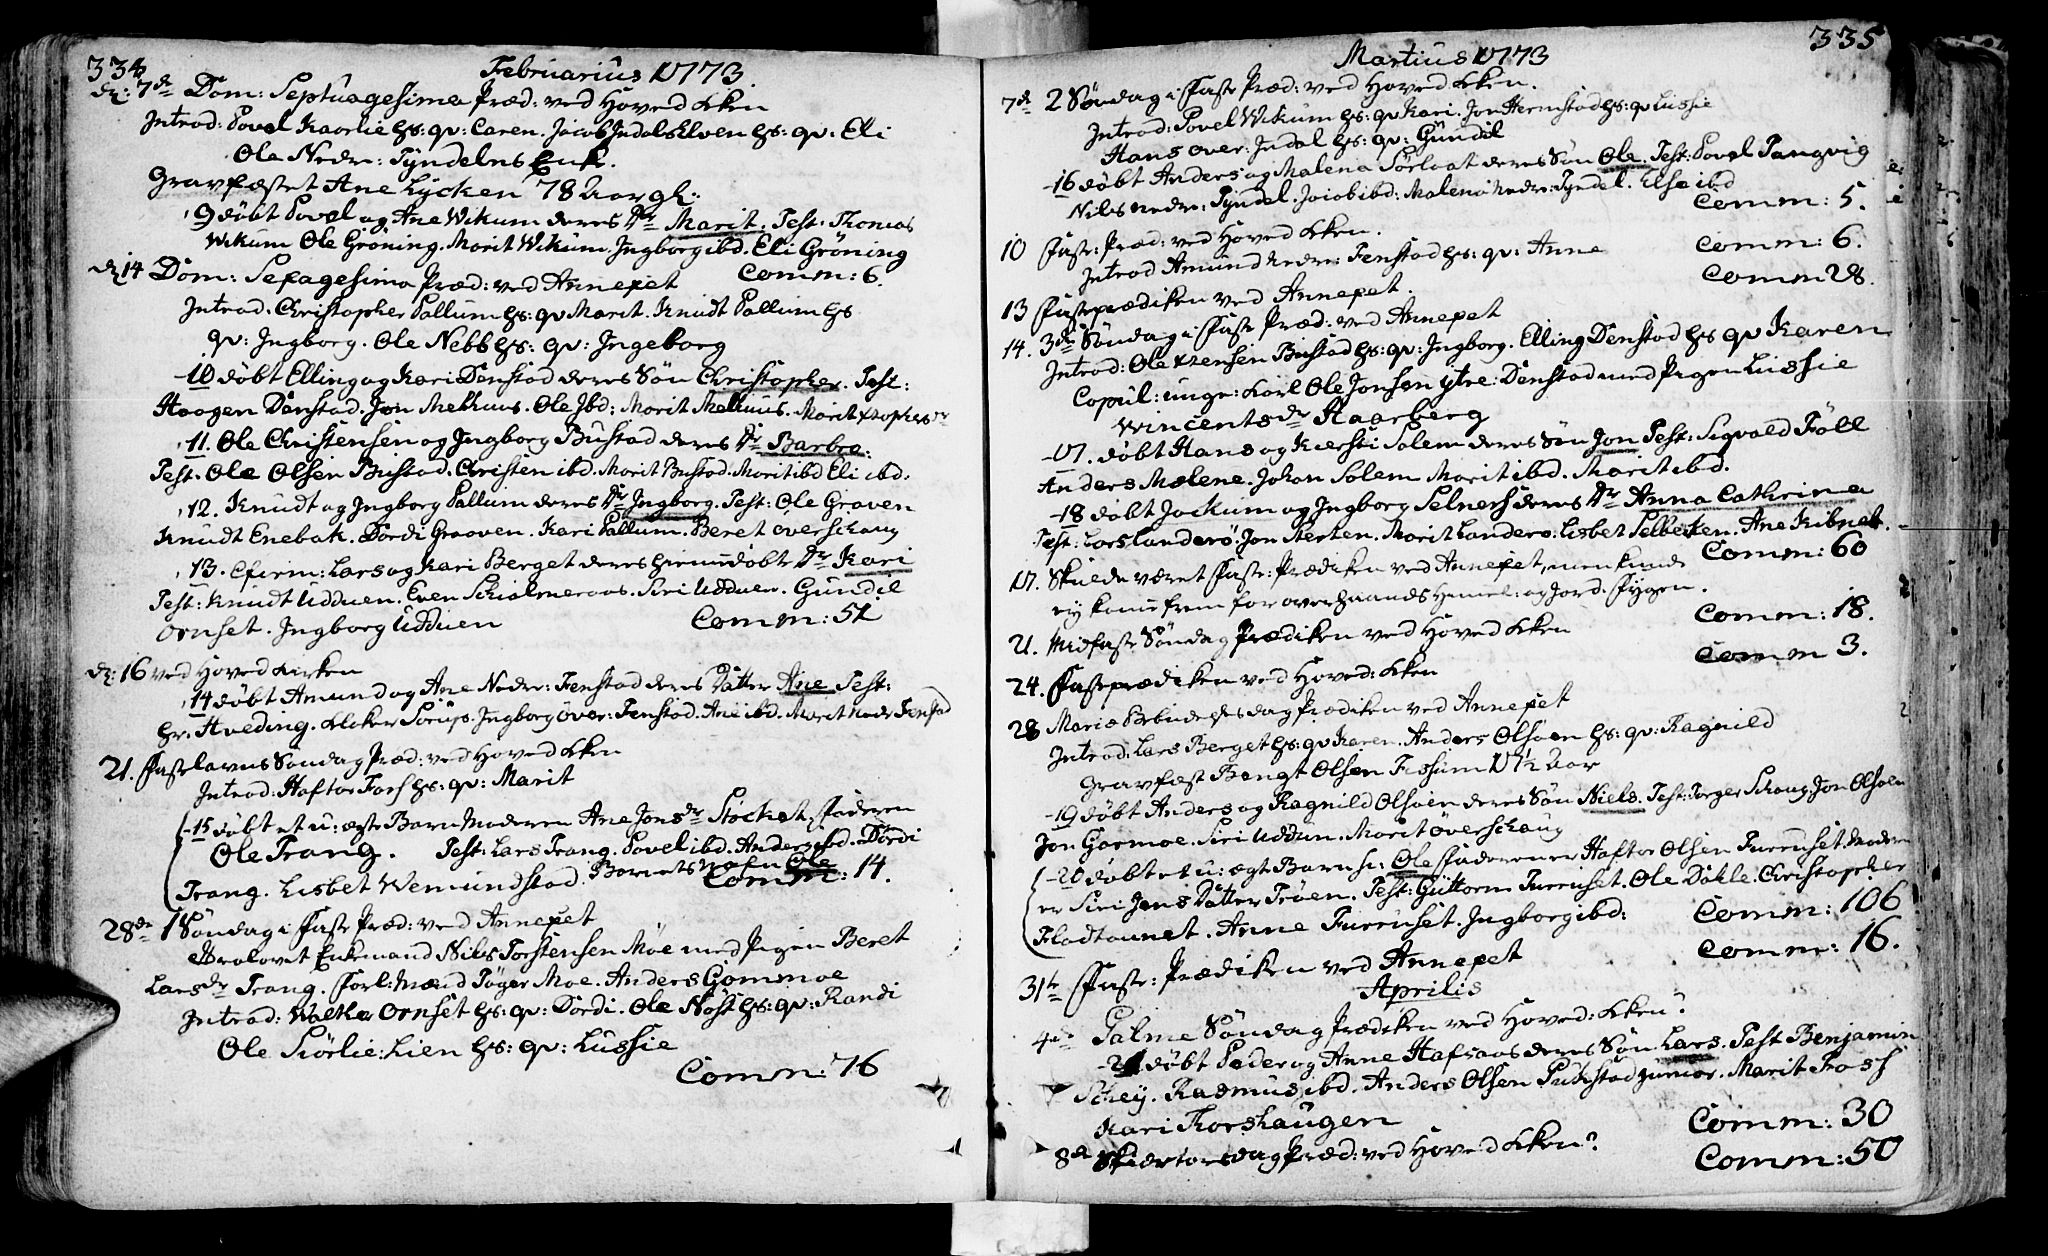 334
Februarius 1773
d: 7de Dom: Septuagesima Præd: ved Hoved Kken
Introd: Povel Kaarlie hs: qv: Caren. Jacob Indals Elven hs: qv: Eli
Ole Nedre: Tyndelns Enk.
Gravfæstet Ane Lycken 78 Aar gl:
9 døbt Povel og Ane Wikum deres Dr Marit. Test: Thomas
Wikum Ole Grøning. Marit Wikum. Ingborg ibd. Eli Grøning
d 14 Dom: Sexagesima Præd: ved Annexet Comm: 6.
Introd. Christopher Pallum hs: qv Marit. Knudt Pallum hs
qv: Ingborg. Ole Nebb hs: qv: Ingeborg
-10 døbt Elling og Kari Denstad deres Søn Christopher. Test:
Haagen Denstad. Jon Melhuus. Ole Ibd: Marit Melhuus. Marit Xtophersdr
11. Ole Christensen og Ingborg Bustad deres Dr Barbro:
Test. Ole Olsen Bustad. Christen ibd. Marit Bustad. Marit ibd Eli ibd.
12. Knudt og Ingborg Pallum deres Dr Ingborg. Test: Ole Graven
Knudt Enebak. Dordi Graaven. Kari Pallum. Beret overschaug
13. Cfirm: Lars og Kari Berget deres hiemedøbte Dr Kari
Test: Knudt Udduen. Even Schialmeraas. Siri Udduen. Gundil
Ornset. Ingborg Udduen Comm: 51
d: 16 ved Hoved Kirken
14 døbt Amund og Ane Nedre: Fenstad deres Datter Ane Test:
Hr. Hveding. Klokker Sörup. Ingborg över: Fenstad. Ane ibd. Marit Nedr Fenstad
21. Fastelavns Søndag Præd: ved Hoved Kken
Introd: Haftor Fors hs: qv: Marit
-15 døbt et u: ægte Barn Moderen Ane Jonsdr Stocket. Faderen
Ole Trang. Test: Lars Trang. Povel ibd. Anders ibd. Dordi
Trang. Lisbet Wemundstad. Barnets Nafn Ole Comm: 14.
28de 1 Søndag i Faste Præd: ved Annexet
Trolovet Enkemand Nils Torstensen Moe med Pigen Beret
Larsdr Trang. Forl: Mænd Töger Moe. Anders Gammoe
Introd: Walkor Ornset hs: qv: Dordi. Ole Nöst hs: qv: Randi
Ole Siörlie: Lien hs: qv: Lussie
Comm: 76
335
Martius 1773
7de 2 Søndag i Faste Præd: ved Hoved Kken.
Introd: Povel Wikum hs: qv Kari. Jon Hernstad hs: qv Lussie
Hans over: Indal hs: qv: Gündil
-16 døbt Anders og Malena Sörloat deres Søn Ole. Test: Povel Tangvig
Nils nedre: Tyndel. Jacob ibd: Malena Nedre: Tyndel. Else ibd
Comm: 5.
10 Faste: Præd: ved Hoved Kken.
Introd Amund Nedre: Fenstad hs: qv: Anne Comm: 6.
13 Fasteprædiken ved Annexet. Comm 28.
14. 3de Søndag i Faste Præd: ved Annexet
Introd: Ole Xtensen Bustad hs: qv: Ingborg. Elling Denstad hs qv Karen
Copul: unge: Karl Ole Jonsen ytre: Denstad med Pigen Lussie
Wincentsdr Haarberg
-17. døbt Hans og Kiersti Solem deres Søn Jon Test: Sigvald Töll
Anders Mælene. Johan Solem Marit ibd. Marit ibd.
-18 døbt Jockum og Ingborg Selners deres Dr Anna Cathrina
Test: Lars Landerö. Jon Sterten. Marit Landero. Lisbet Selbekken. Ane Kibnet.
Comm: 60
17. Skulde været Faste: Prædiken ved Annexet, men kunde
ey komme frem for overhaands Hemel: og Jord. Fygen.
Comm: 18.
21. Midfaste Søndag Prædiken ved Hoved Kken
Comm 3.
24. Fasteprædiken ved Hoved: Kken
28 Mariæ Bebudelses dag Prædiken ved Annexet
Introd: Lars Berget hs: qv Karen. Anders Olsöen hs: qv: Ragnild
Gravfæst Bengt Olsen Fissum 17 1/2 Aar
-19 døbt Anders og Ragnild Olsöen deres Søn Niels. Test: Törger Schaug. Jon Olsöen
Jon Garmoe. Siri Uddun. Marit överschaug
-20 døbt et u: ægt Barn h: Ole Faderen er Haftor Olsen Furruset. Moderen
er Siri Jons Datter Tröen. Test: Güttorm Furruset. Ole Dökle. Christopher
Fladtaunet. Anne Furruset. Ingborg ibd: Comm: 106
31te Faste: Prædiken ved Annexet Comm: 16.
Aprilis
4de Palme Søndag Prædiken ved Hoved: Kken.
-21 døbt Peder og Anne Hafsaas deres Søn Lars. Test Benjamin
Schey. Rasmus ibd. Anders Olsen Pukstad junior. Marit Foss
Kari Thorshaugen Comm: 30
8de Skiertorsdag Præd: ved Hoved Kken. Comm: 50